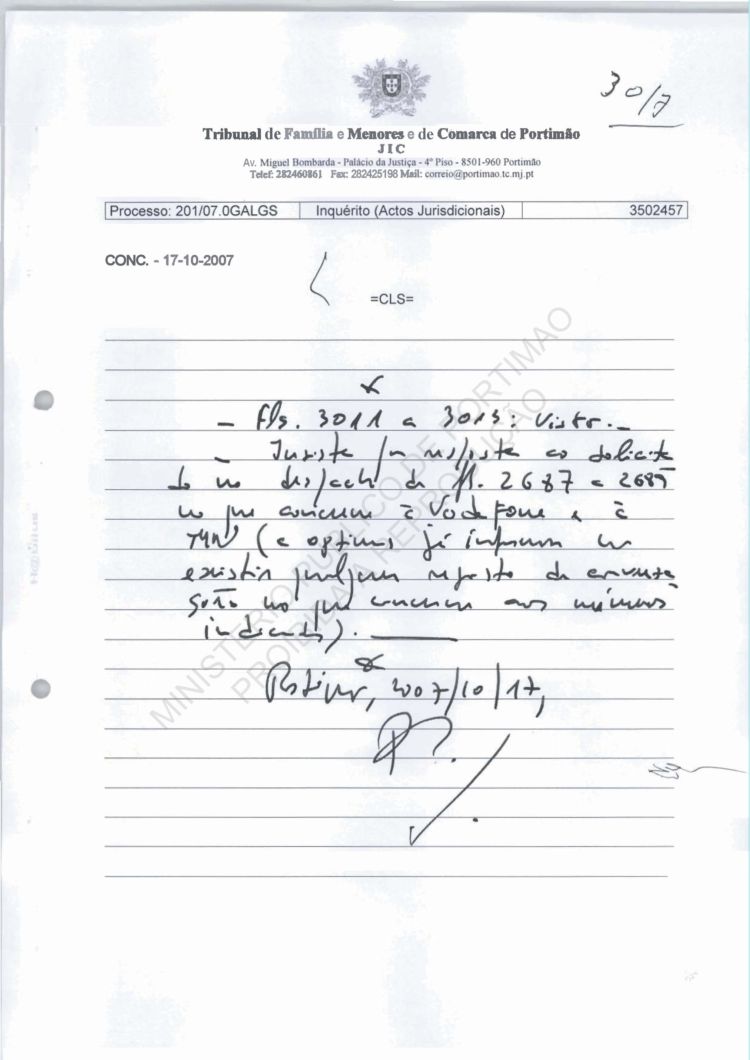 30/7
Tribunal de Família e Menores e de Comarca de Portimão
JIC
Av. Miguel Bombarda - Palácio da Justiça - 4º Piso - 8501-960 Portimão
Telef: 282460861 Fax: 282425198 Mail: correio@portimao.tc.mj.pt
Processo: 201/07.0GALGS Inquérito (Actos Jurisdicionais) 3502457
CONC. - 17-10-2007
=CLS=
- Fls. 3011 a 3013: Visto.
- Insista resposta ao solicita
do no despacho de fl. 2687 a 2689
no que concerne à Vodafone e à
TMN (a optimus já informou
existir qualquer registo de conversa
no que concerne aos números
indicados).
Portimão, 2007/10/17,
MINISTÉRIO PÚBLICO DE PORTIMAO
PROIBIDA A REPRODUÇÃO